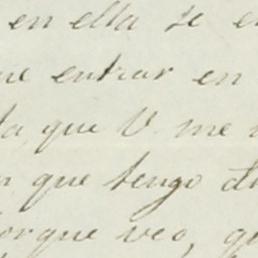 en ella se e
ue entrar en
ta que V. me
n que tengo d
orque veo, qu